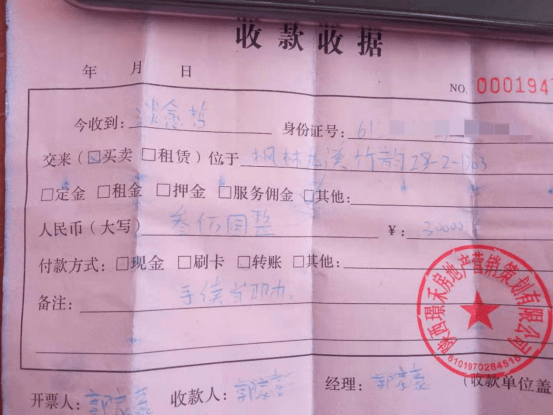 收款收据
年 月 日
NO. 000194
今收到： 身份证号：61
交来（☑买卖 □租赁）位于 枫林九溪竹韵28-2-1203
□定金 □租金 □押金 □服务佣金 □其他：
人民币（大写） 叁佰圆整 ¥： 30000
付款方式：□现金 □刷卡 □转账 □其他：
备注： 手续
陕西璟禾房地产营销策划有限公司
6101970284516
开票人： 收款人： 经理： （收款单位盖